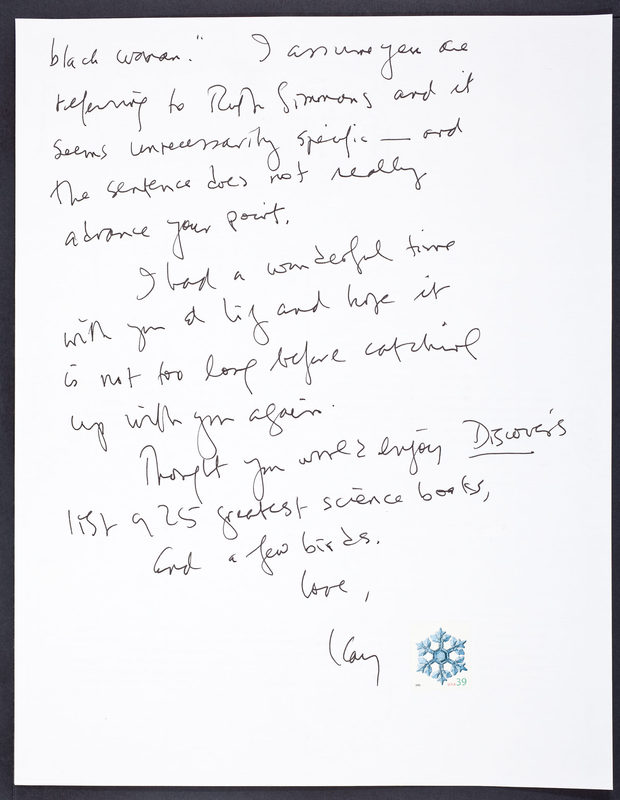 black woman." I assume you are
referring to Ruth Simmons and it
seems unnecessarily specific — and
the sentence does not really
advance your point.
I had a wonderful time
with you & Liz and hope it
is not too long before catching
up with you again.
Thought you would enjoy Discover's
list of 25 greatest science books,
and a few birds.
Love,
Kay
39